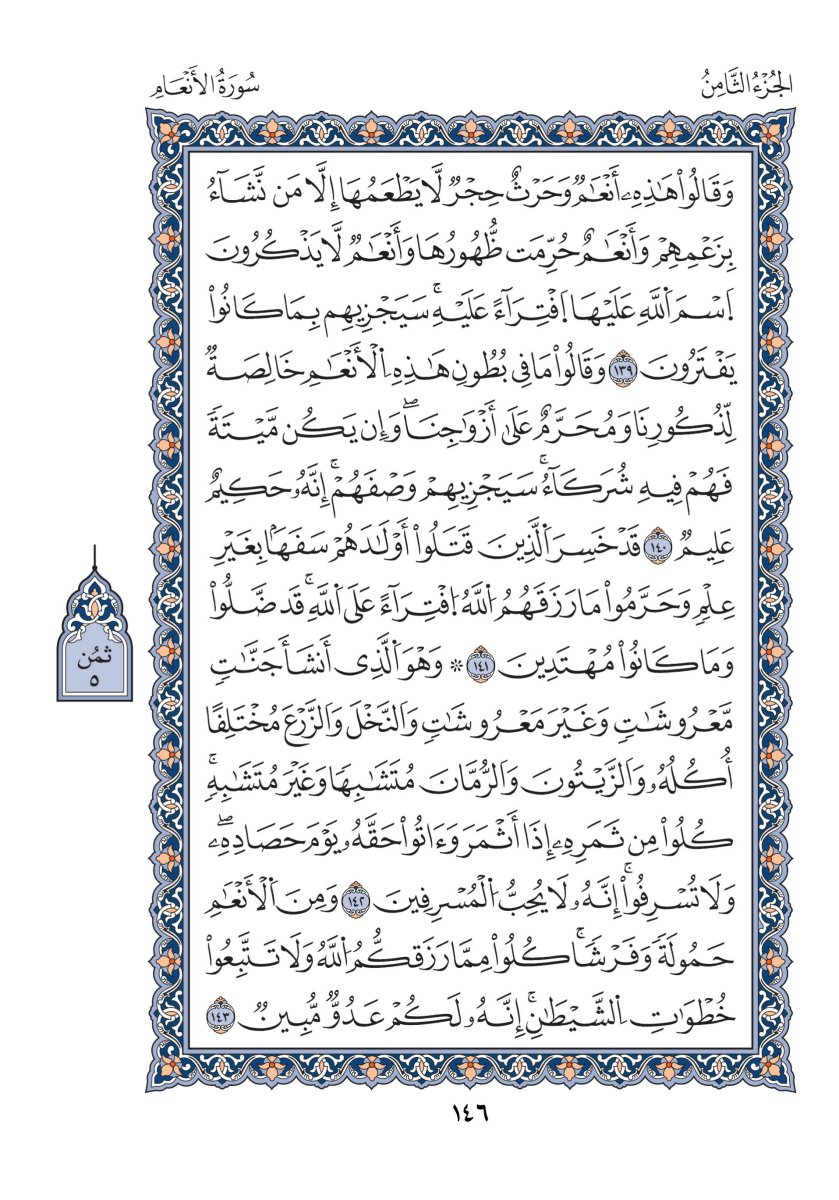 الجُزْءُ الثَّامِنُ
سُورَةُ الأَنْعَامِ
وَقَالُواْ هَٰذِهِۦ أَنْعَٰمٌ وَحَرْثٌ حِجْرٌ لَّا يَطْعَمُهَا إِلَّا مَن نَّشَآءُ
بِزَعْمِهِمْ وَأَنْعَٰمٌ حُرِّمَت ظُّهُورُهَا وَأَنْعَٰمٌ لَّا يَذْكُرُونَ
اَسْمَ اَللَّهِ عَلَيْهَا اَفْتِرَآءً عَلَيْهِۚ سَيَجْزِيهِم بِمَا كَانُواْ
يَفْتَرُونَ ١٣٩ وَقَالُواْ مَا فِى بُطُونِ هَٰذِهِ اِلْأَنْعَٰمِ خَالِصَةٌ
لِّذُكُورِنَا وَمُحَرَّمٌ عَلَىٰ أَزْوَٰجِنَاۖ وَإِن يَكُن مَّيْتَةً
فَهُمْ فِيهِ شُرَكَآءُۚ سَيَجْزِيهِمْ وَصْفَهُمْۚ إِنَّهُۥ حَكِيمٌ
عَلِيمٌ ١٤٠ قَدْ خَسِرَ اَلَّذِينَ قَتَلُواْ أَوْلَٰدَهُمْ سَفَهَۢا بِغَيْرِ
عِلْمٍ وَحَرَّمُواْ مَا رَزَقَهُمُ اُللَّهُ اُفْتِرَآءً عَلَى اَللَّهِۚ قَد ضَّلُّواْ
وَمَا كَانُواْ مُهْتَدِينَ ١٤١ ۞ وَهْوَ اَلَّذِى أَنشَأَ جَنَّٰتٍ
مَّعْرُوشَٰتٍ وَغَيْرَ مَعْرُوشَٰتٍ وَالنَّخْلَ وَالزَّرْعَ مُخْتَلِفًا
أُكُلُهُۥ وَالزَّيْتُونَ وَالرُّمَّانَ مُتَشَٰبِهًا وَغَيْرَ مُتَشَٰبِهٍۚ
كُلُواْ مِن ثَمَرِهِۦ إِذَا أَثْمَرَ وَءَاتُواْ حَقَّهُۥ يَوْمَ حَصَادِهِۦۖ
وَلَا تُسْرِفُواْۚ إِنَّهُۥ لَا يُحِبُّ اُلْمُسْرِفِينَ ١٤٢ وَمِنَ اَلْأَنْعَٰمِ
حَمُولَةً وَفَرْشًاۚ كُلُواْ مِمَّا رَزَقكُّمُ اُللَّهُ وَلَا تَتَّبِعُواْ
خُطْوَٰتِ اِلشَّيْطَٰنِۚ إِنَّهُۥ لَكُمْ عَدُوٌّ مُّبِينٌ ١٤٣
ثُمُن
٥
١٤٦